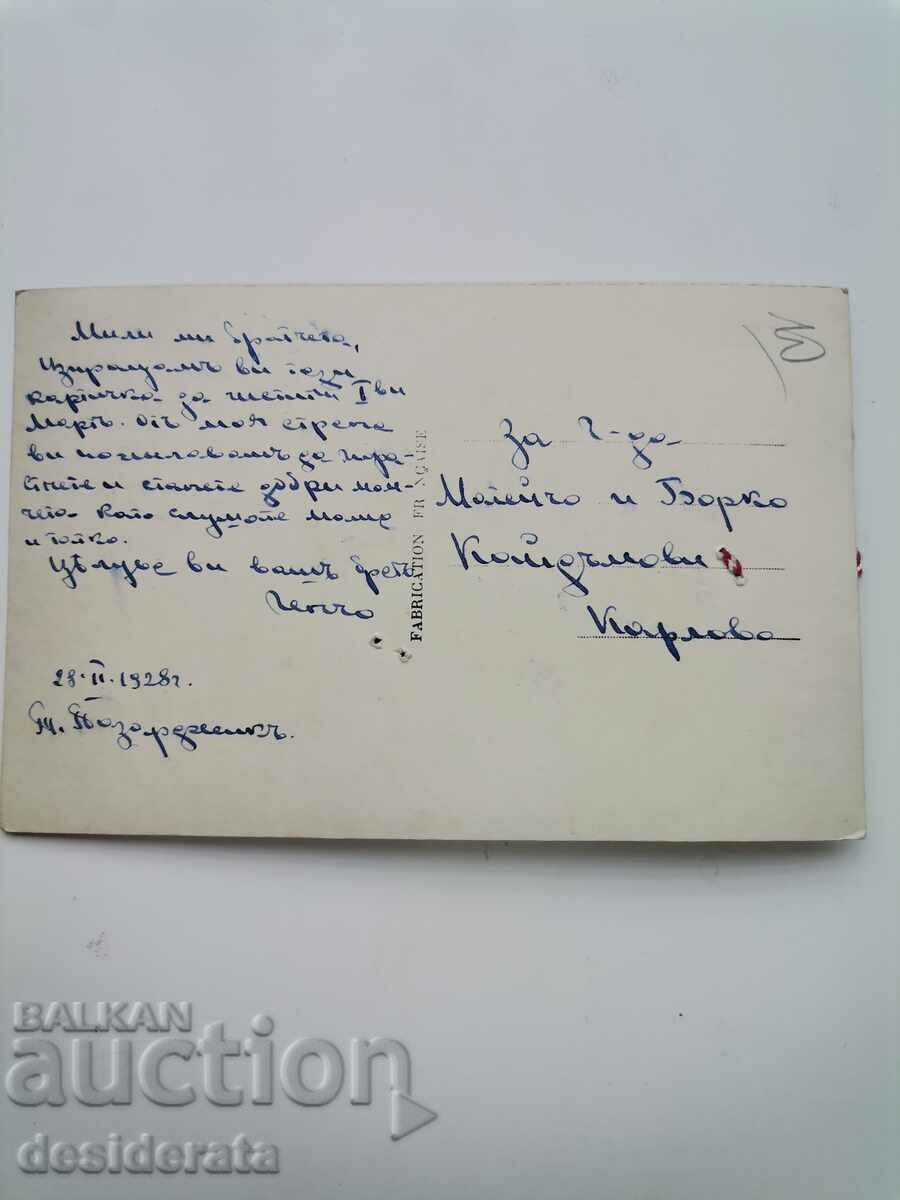 Мили ми братчета,
Изпращамъ ви тази
картичка да честитя I ви
Мартъ. Отъ моя страна
ви пожелавамъ да пора-
снете и станете добри мом-
чета като слушате мама
и татко.
Цѣлува ви вашъ братъ
Генчо
28.II.1928 г.
Т. Пазарджикъ.
FABRICATION FR NÇAISE
За Г-да
и Борко
Карлово
BALKAN
auction
desiderata